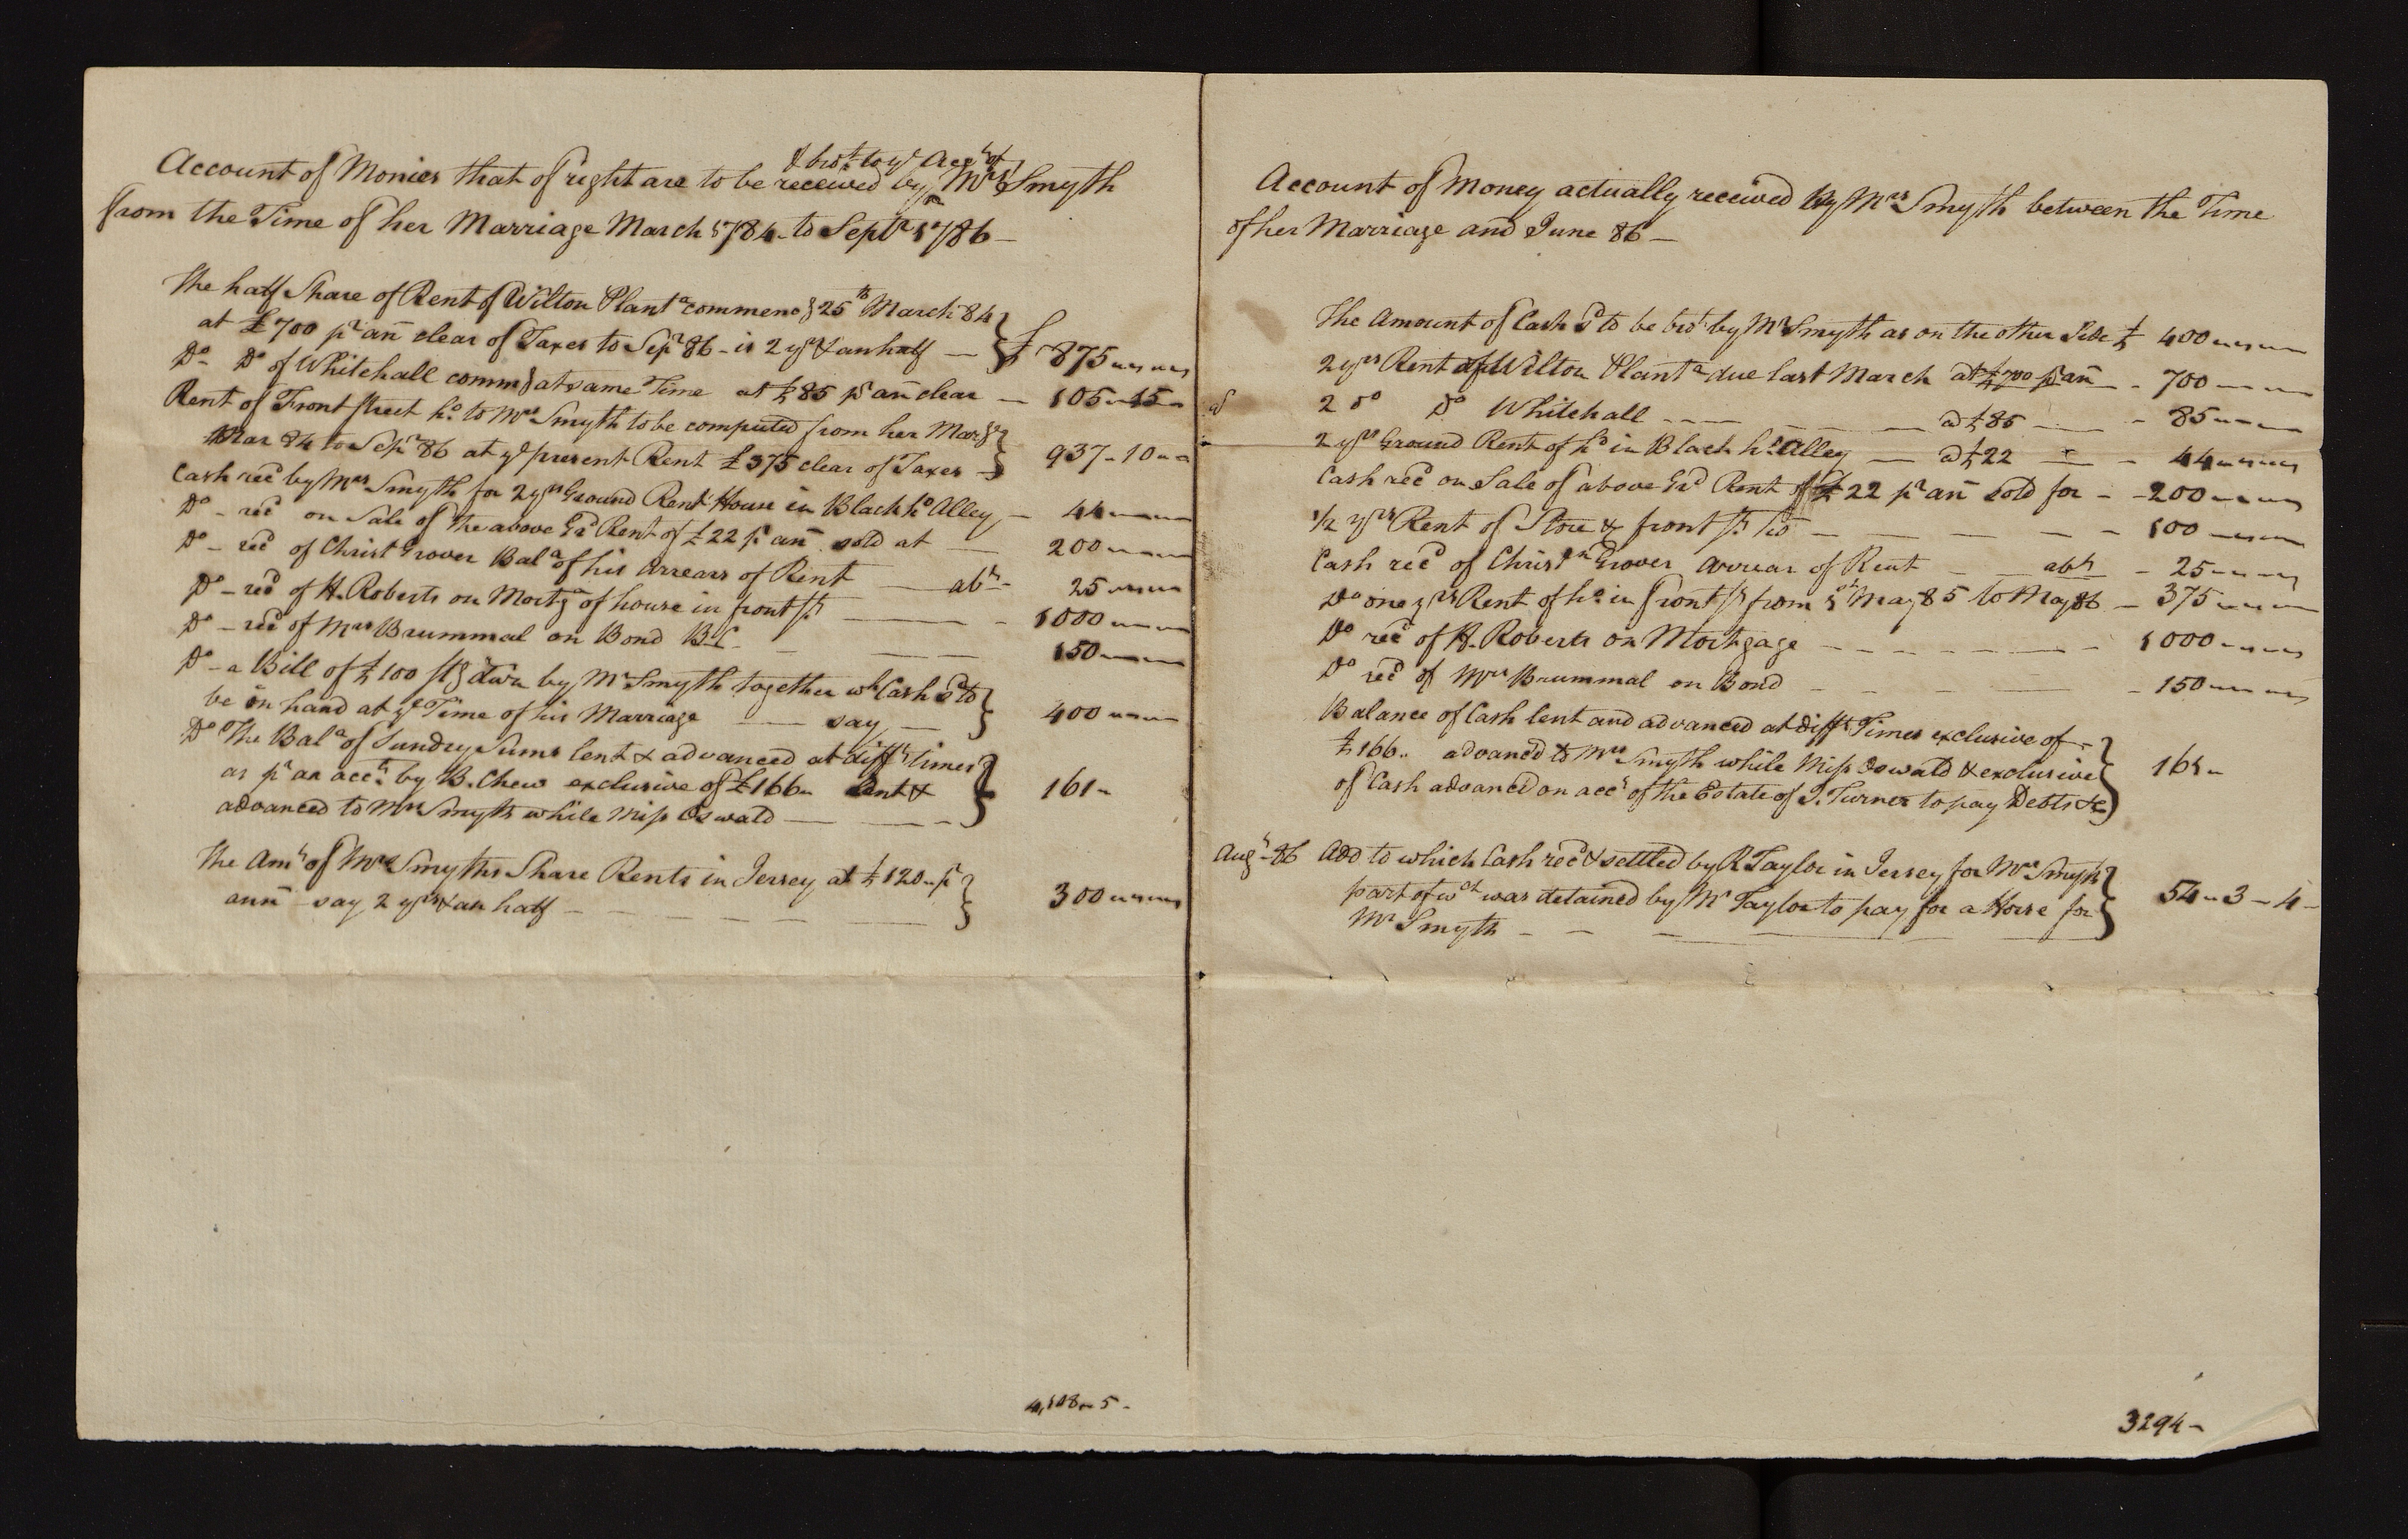 & bro.t to ye Acct of
Account of Monies that of right are to be received by Mrs Smyth
from the Time of her Marriage March 1784 to Septr 1786 —
The half Share of Rent of Wilton Planta commencg 25th March 84
at £700 pr añ clear of Taxes to Sepr 86 – is 2 yrs & an half — } £ 875 " "
Do – Do of Whitehall commg at same Time at £85 pr añ clear — 105 " 15 "
Rent of Front Street ho to Mrs Smyth to be computed from her Marge
Mar 84 to Sepr 86 at ye present Rent £375 clear of Taxes — } 937 – 10 "
Cash recd by Mrs Smyth for 2 yrs Ground Rent House in Black ho Alley — 44 " "
Do – recd on Sale of the above Gd Rent of £22 pr añ sold at — 200 " "
Do – recd of Christ Grover Bala of his Arrears of Rent — abt – 25 " "
Do – recd of H. Roberts on Mortga of house in front St — – 1000 " "
Do – recd of Mrs Brummal on Bond B.C. – — — 150 " "
Do – a Bill of £100 stg drwn by Mr Smyth together wh Cash sd to
be on hand at ye Time of his Marriage — say — } 400 " "
Do The Bala of Sundry Sums lent & advanced at difft times
as pr an acct by B. Chew exclusive of £166 " lent &
advanced to Mrs Smyth while Miss Oswald — — – } 161 "
The Amt of Mrs Smyths Share Rents in Jersey at £120 " pr
anñ – say 2 yrs & an half – – – – – — } 300 " "
4,198 " 5 –
Account of Money actually received by Mrs Smyth between the Time
of her Marriage and June 86 —
The Amount of Cash sd to be brot by Mr Smyth as on the other Side £ 400 " "
2 yrs Rent of Wilton Planta due last March at £700 pr añ — – 700 " "
2 do Do Whitehall – – – – — @ £85 — – 85 " "
2 yrs Ground Rent of ho in Black ho Alley — @ £22 — – 44 " "
Cash recd on Sale of above Gd Rent of £22 pr añ sold for – – 200 " "
1/2 yrs Rent of Store & front St ho — — — – – 100 " "
Cash recd of Christn Grover Arrear of Rent – — abt – 25 " "
Do one yrs Rent of ho in front St from 1st May 85 to May 86 – 375 " "
Do recd of H. Roberts on Mortgage – – – – – — – 1000 " "
Do recd of Mrs Brummal on Bond – – – — – 150 " "
Balance of Cash lent and advanced at difft Times exclusive of
£166 " advancd to Mrs Smyth while Miss Oswald & exclusive
of Cash advanced on acct of the Estate of J. Turner to pay Debts &c } 161 "
Augt – 86 Add to which Cash recd & settled by R Taylor in Jersey for Mrs Smyth
part of wch was detained by Mr Taylor to pay for a Horse for
Mr Smyth – – – — — } 54 " 3 – 4 –
3294 –